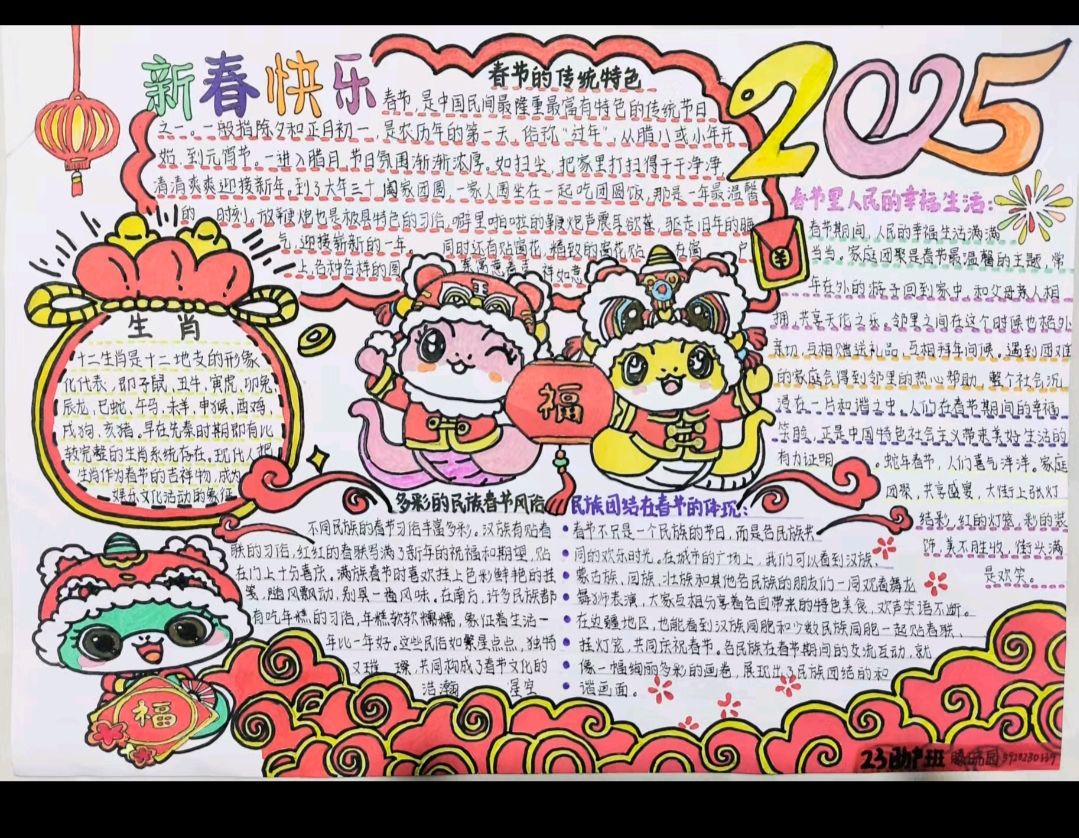 新春快乐
2025
春节的传统特色
春节,是中国民间最隆重最富有特色的传统节日
之一。一般指除夕和正月初一,是农历年的第一天,俗称“过年”,从腊八或小年开
始,到元宵节。一进入腊月,节日氛围渐渐浓厚。如扫尘,把家里打扫得干干净净,
清清爽爽迎接新年。到了大年三十阖家团圆,一家人围坐在一起吃团圆饭,那是一年最温馨
的时刻,放鞭炮也是极具特色的习俗,噼里啪啦的鞭炮声震耳欲聋,驱走旧年的晦
气,迎接崭新的一年。同时还有贴窗花,精致的窗花贴在窗户
上,各种各样的图案寓意吉祥如意
生肖
十二生肖是十二地支的形象
化代表,即子鼠,丑牛,寅虎,卯兔,
辰龙,巳蛇,午马,未羊,申猴,酉鸡,
戌狗,亥猪。早在先秦时期即有比
较完整的生肖系统存在。现代人把
生肖作为春节的吉祥物,成为
娱乐文化活动的象征
福
春节里人民的幸福生活:
春节期间,人民的幸福生活满满
当当。家庭团聚是春节最温馨的主题,常
年在外的游子回到家中,和父母亲人相
拥,共享天伦之乐。邻里之间在这个时候也格外
亲切,互相赠送礼品,互相拜年问候。遇到困难
的家庭会得到邻里的热心帮助,整个社会沉
浸在一片和谐之中。人们在春节期间的幸福
笑脸,正是中国特色社会主义带来美好生活的
有力证明。蛇年春节,人们喜气洋洋。家庭
团聚,共享盛宴,大街上张灯
结彩,红的灯笼,彩的装
饰,美不胜收,街头满
是欢笑。
多彩的民族春节风俗
不同民族的春节习俗丰富多彩,汉族有贴春
联的习俗,红红的春联写满了新年的祝福和期望,贴
在门上十分喜庆。满族春节时喜欢挂上色彩鲜艳的挂
笺,随风飘动,别具一番风味。在南方,许多民族都
有吃年糕的习俗,年糕软软糯糯,象征着生活一
年比一年好,这些民俗如繁星点点,独特
又璀璨,共同构成了春节文化的
浩瀚星空
民族团结在春节的体现:
春节不只是一个民族的节日,而是各民族共
同的欢乐时光。在城市的广场上,我们可以看到汉族、
蒙古族、回族、壮族和其他各民族的朋友们一同观看舞龙
舞狮表演,大家互相分享着各自带来的特色美食,欢声笑语不断。
在边疆地区,也能看到汉族同胞和少数民族同胞一起贴春联、
挂灯笼,共同庆祝春节。各民族在春节期间的交流互动,就
像一幅绚丽多彩的画卷,展现出了民族团结的和
谐画面。
福
23助产班